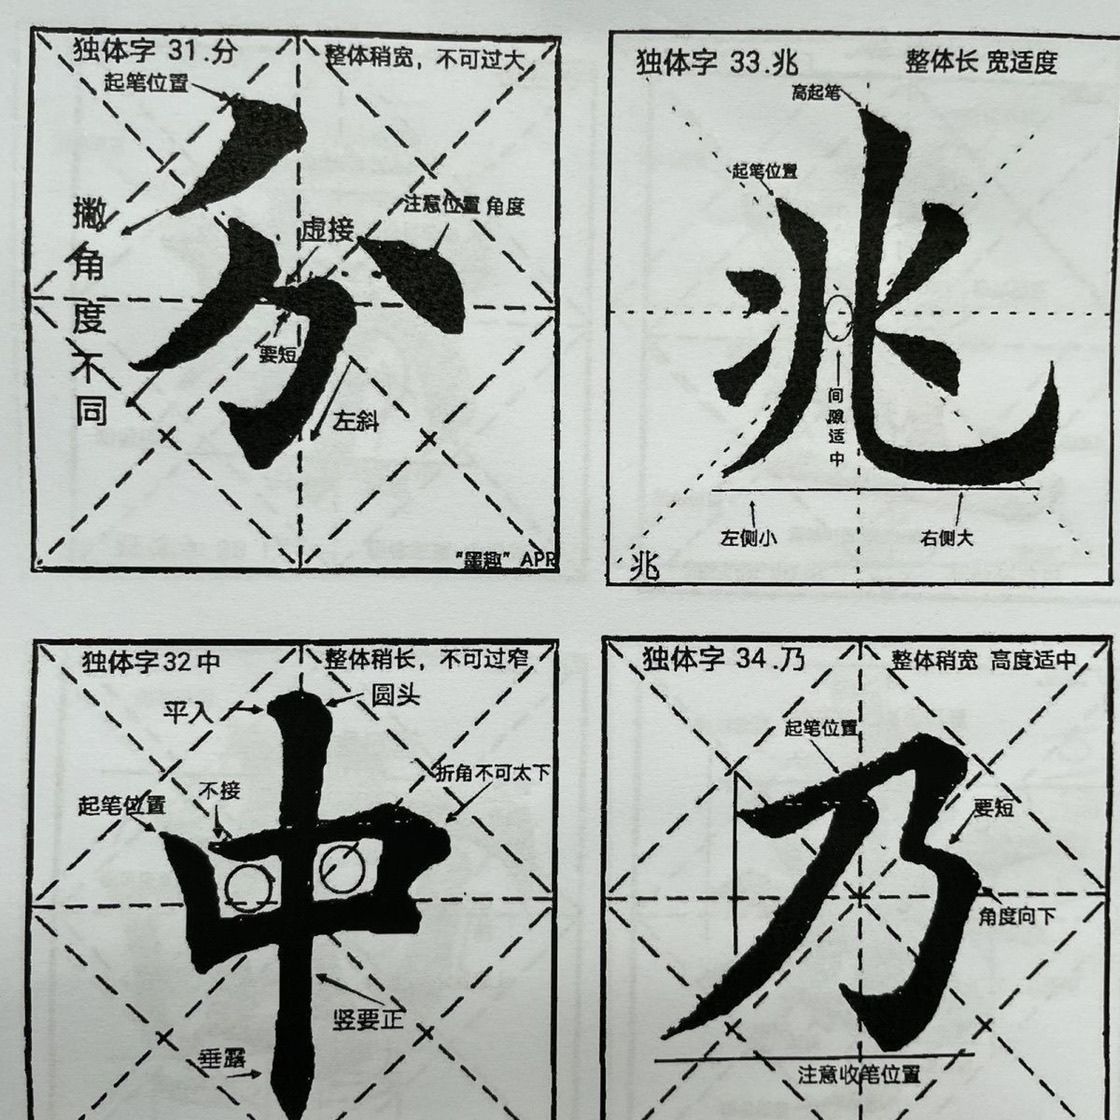 独体字 31.分
整体稍宽，不可过大
起笔位置
撇角度不同
虚接
注意位置 角度
要短
左斜
分
"墨趣" APR
独体字 33.兆
整体长 宽适度
高起笔
起笔位置
间隙适中
左侧小
右侧大
兆
兆
独体字32中
整体稍长，不可过窄
平入
圆头
折角不可太下
不接
起笔位置
中
竖要正
垂露
独体字 34.乃
整体稍宽 高度适中
起笔位置
要短
角度向下
乃
注意收笔位置